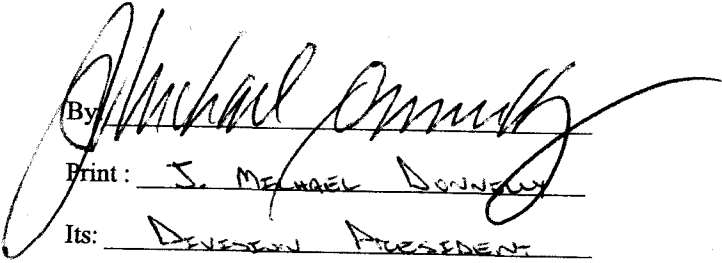 By J Michael Donnelly
Print : J. MICHAEL DONNELLY
Its: DIVISION PRESIDENT